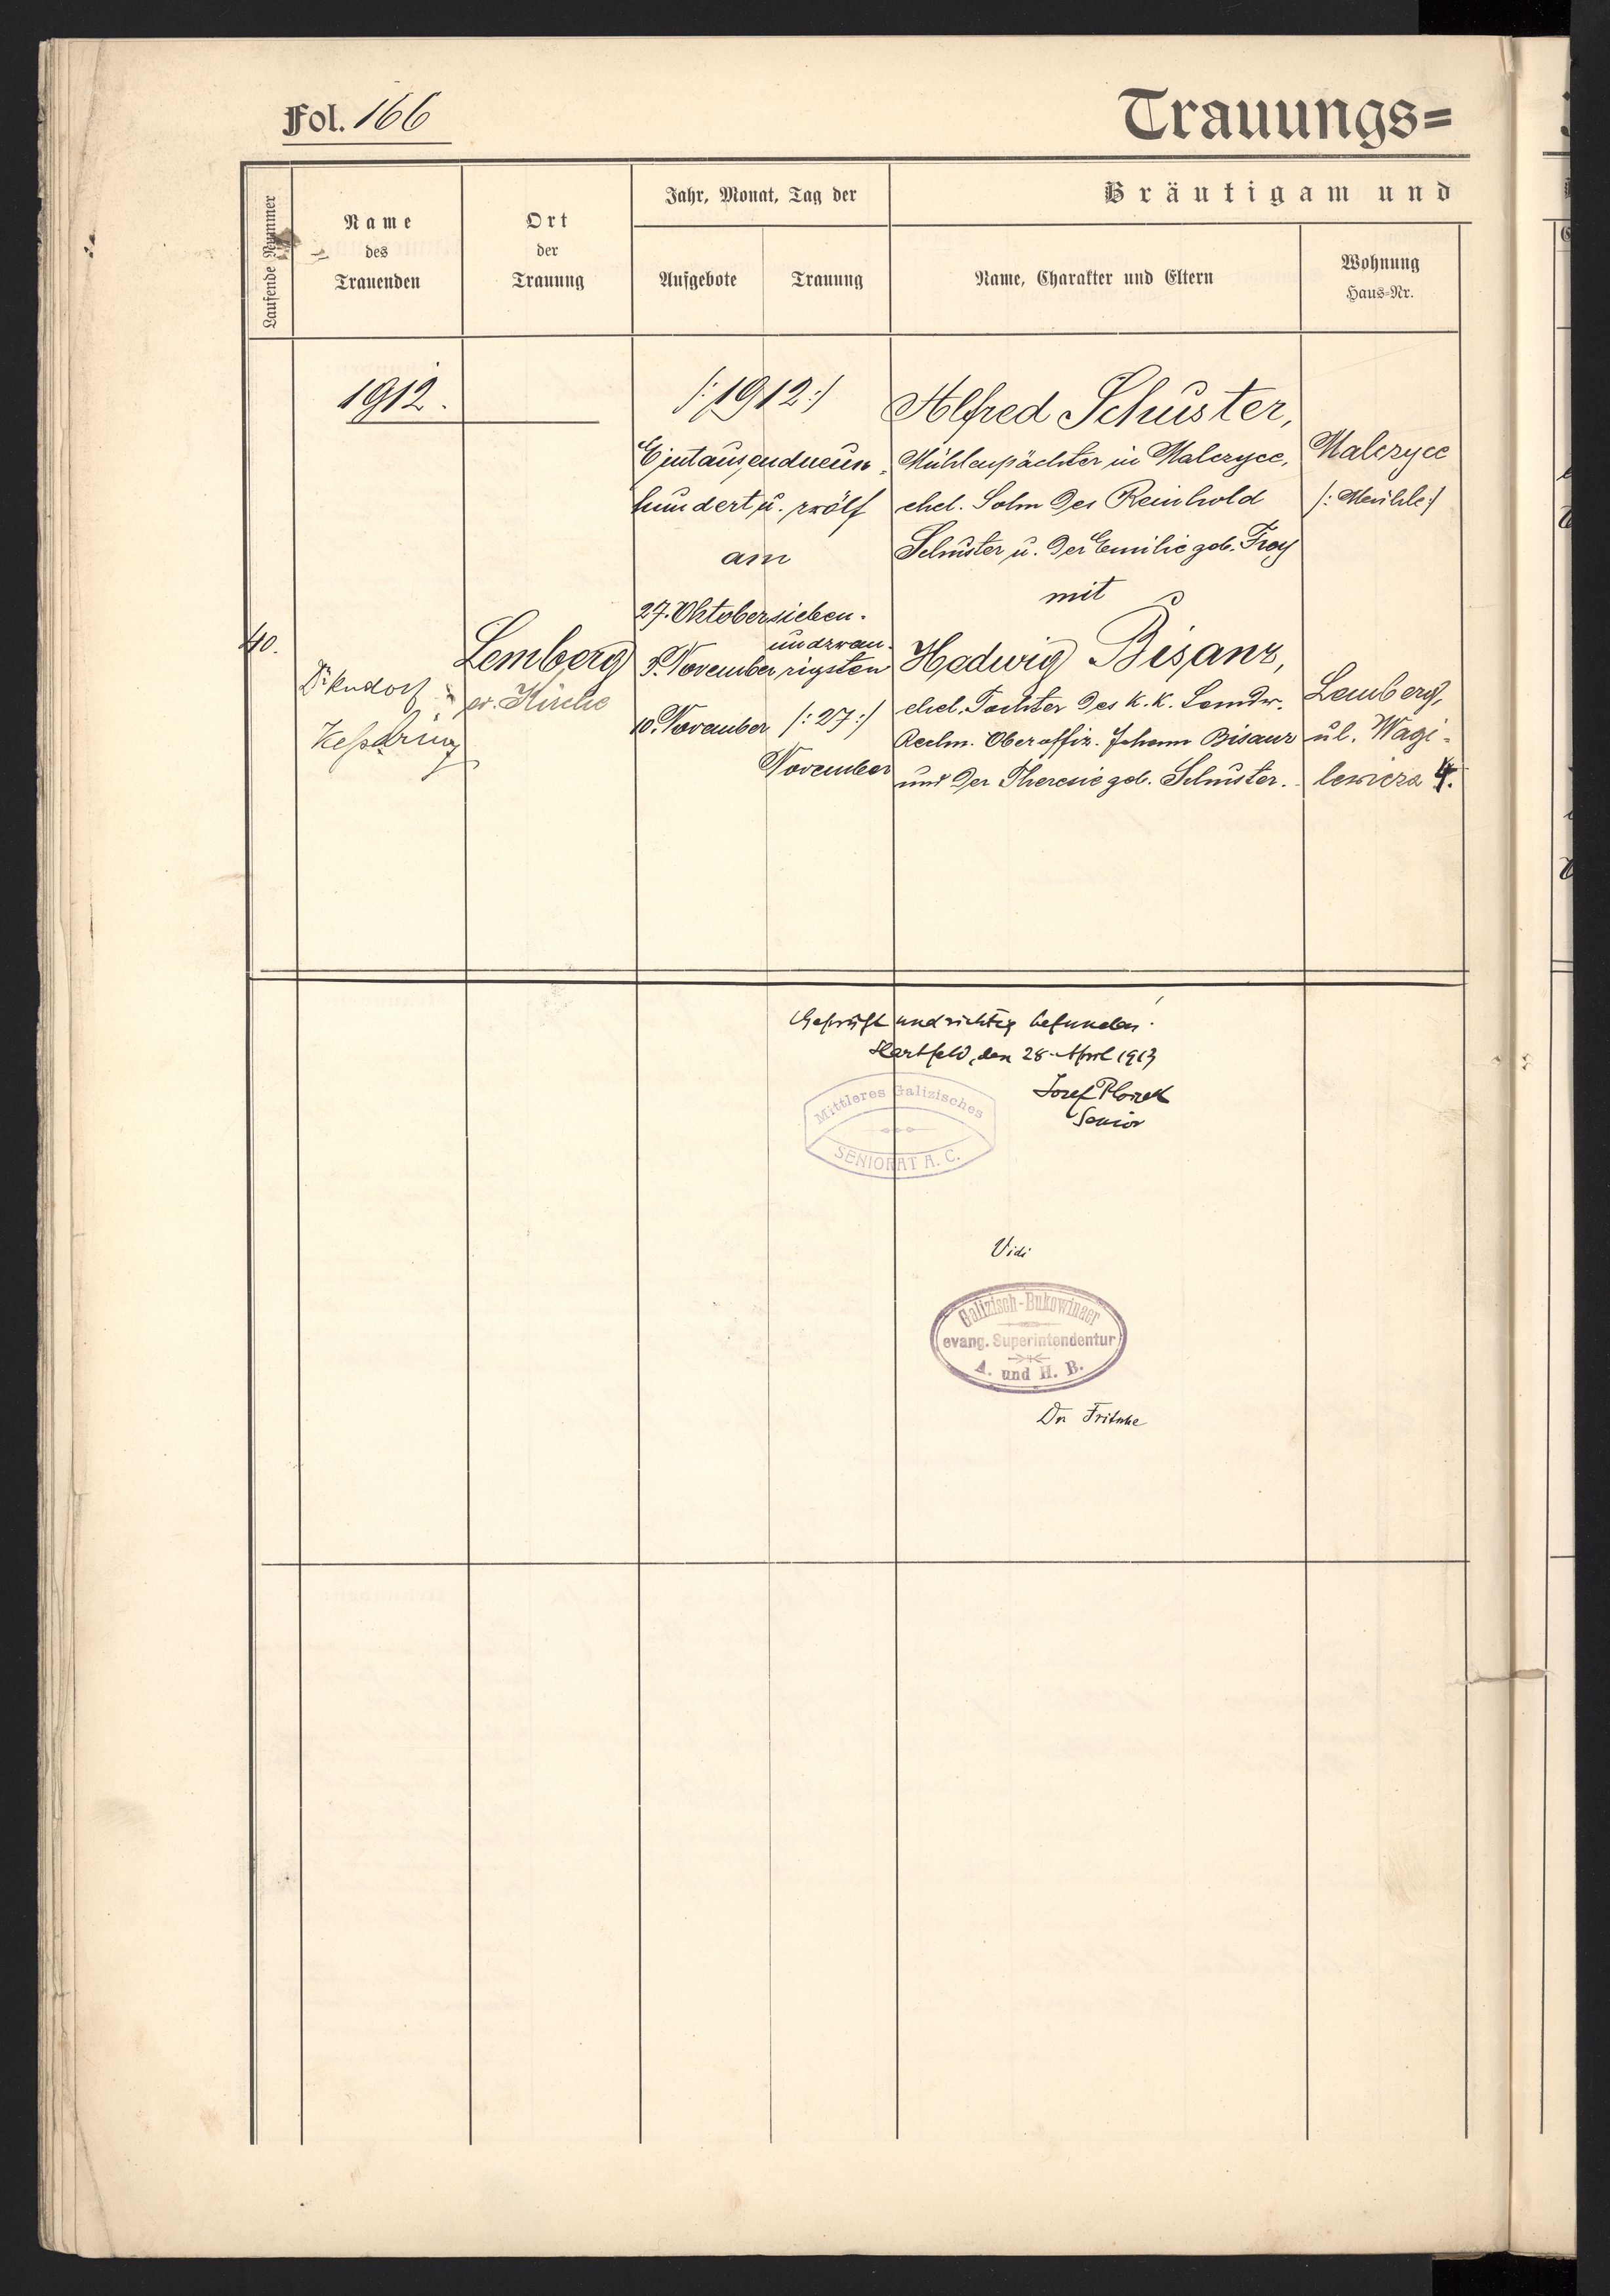 Fol. 166
Trauungs=
Laufende Nummer
Name
des
Trauenden
Ort
der
Trauung
Jahr, Monat, Tag der
Aufgebote
Trauung
Bräutigam und
Name, Charakter und Eltern
Wohnung
Haus-Nr.
1912.
40.
Dr. Rudolf
Kesselring
Lemberg
ev. Kirche
/:1912:/
Eintausendneun-
hundert u. zwölf
am
27. Oktober
3. November
10. November
sieben-
undzwan-
zigsten
/:27:/
November
Alfred Schuster,
Mühlenpächter in Malczyce,
ehel. Sohn des Reinhold
Schuster u. der Emilie geb. Frey
mit
Hedwig Bisanz,
ehel. Tochter des K. K. Landw.
Rechn. Oberoffiz. Johann Bisanz
und der Theresie geb. Schuster.
Malczyce
/: Meühle:/
Lemberg,
ul. Wagi-
lewicza 4.
Geprüft und richtig befunden.
Hartfeld, den 28. April 1913
Josef Ploszek
Senior
Mittleres Galizisches
SENIORAT A. C.
Vidi
Galizisch-Bukowinaer
evang. Superintendentur
A. und H. B.
Dr Fritsche